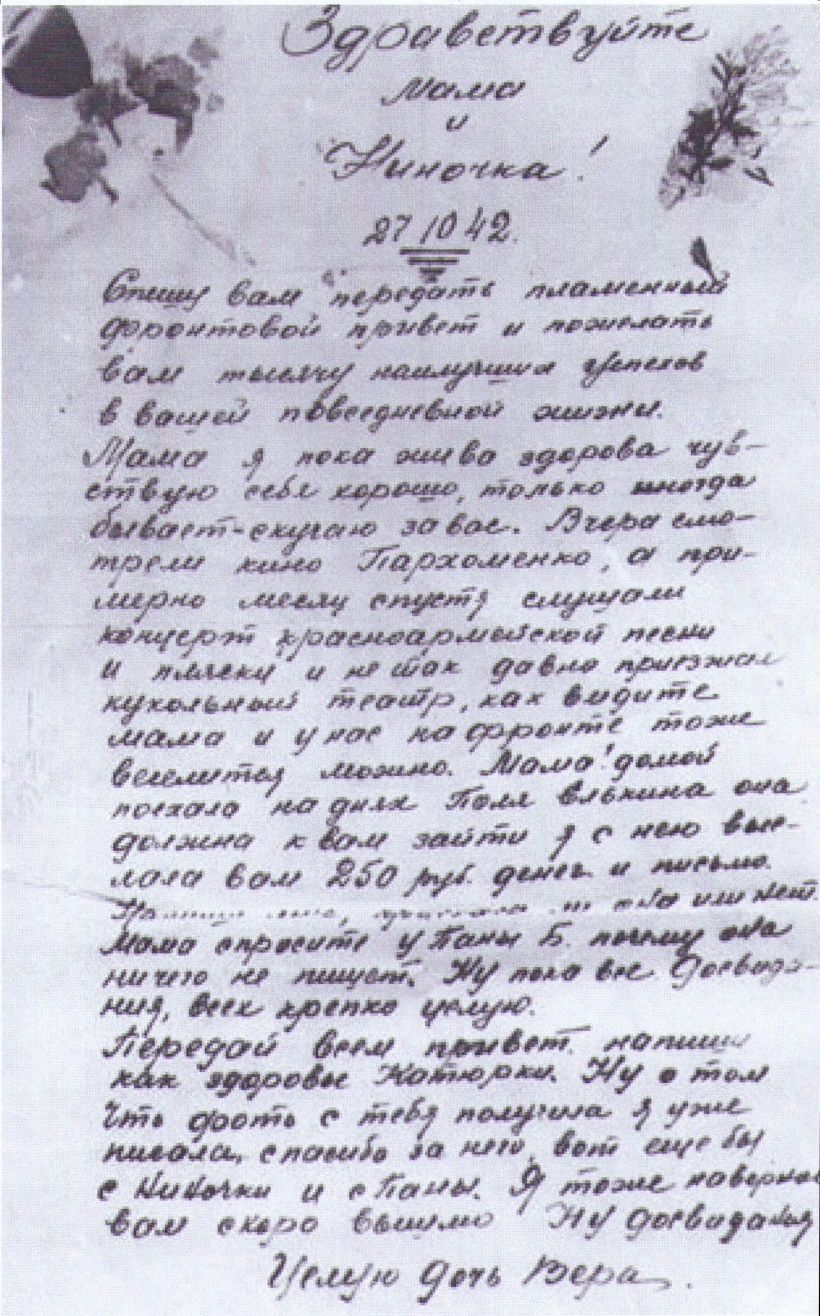 Здравствуйте
мама
и
Ниночка!
27 10 42.
Спешу вам передать пламенный
фронтовой привет и пожелать
вам тысячу наилучших успехов
в вашей повседневной жизни.
Мама я пока жива здорова чув-
ствую себя хорошо, только иногда
бывает-скучаю за вас. Вчера смо-
трели кино Пархоменко, а при-
мерно месяц спустя слушали
концерт красноармейской песни
и пляски и не так давно приезжал
кукольный театр, как видите
мама и у нас на фронте тоже
веселится можно. Мама! домой
поехала на днях Поля она
должна к вам зайти я с нею выс-
лала вам 250 руб. денег и письмо.
она или нет.
Мама спросите у Паны Б. почему она
ничего не пишет. Ну пока все Досвида-
ния, всех крепко целую.
Передай всем привет. напиши
как здоровье Котюрки. Ну о том
что фоть с тебя получила я уже
писала, спасибо за него, вот еще бы
с Ниночки и с Паны. Я тоже наверно
вам скоро вышлю Ну досвидания
Целую дочь Вера.